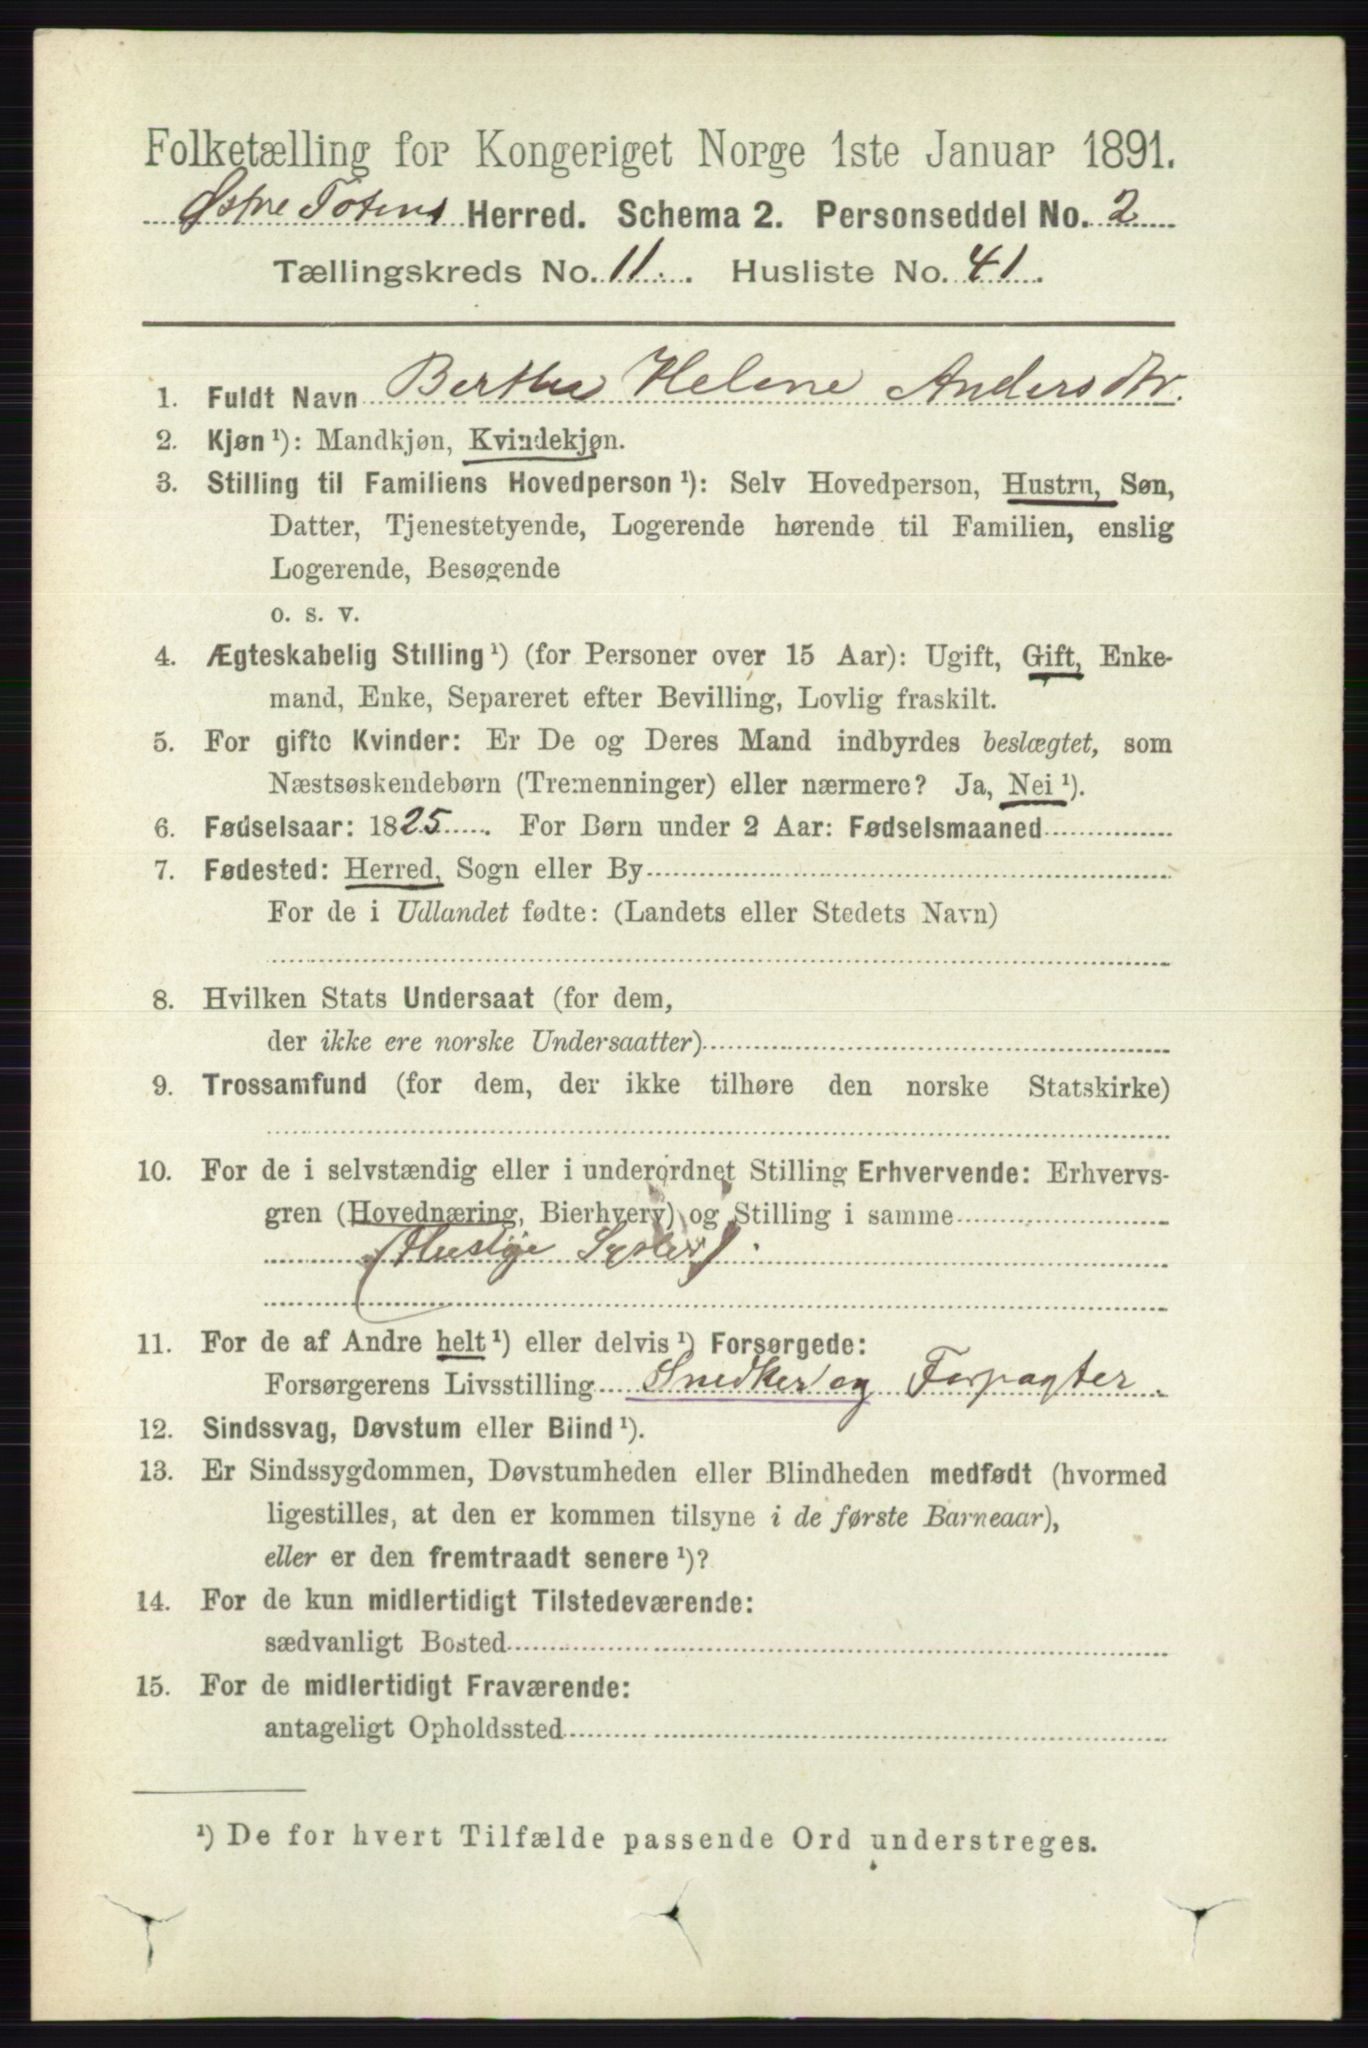 Folketælling for Kongeriget Norge 1ste Januar 1891.
Østre Totens Herred. Schema 2. Personseddel No. 2
Tællingskreds No. 11. Husliste No. 41.
1. Fuldt Navn Berthe Helene Andersdtr.
2. Kjøn ¹): Mandkjøn, Kvindekjøn.
3. Stilling til Familiens Hovedperson ¹): Selv Hovedperson, Hustru, Søn,
Datter, Tjenestetyende, Logerende hørende til Familien, enslig
Logerende, Besøgende
o. s. v.
4. Ægteskabelig Stilling ¹) (for Personer over 15 Aar): Ugift, Gift, Enke-
mand, Enke, Separeret efter Bevilling, Lovlig fraskilt.
5. For gifte Kvinder: Er De og Deres Mand indbyrdes beslægtet, som
Næstsøskendebørn (Tremenninger) eller nærmere? Ja, Nei ¹).
6. Fødselsaar: 1825. For Børn under 2 Aar: Fødselsmaaned
7. Fødested: Herred, Sogn eller By
For de i Udlandet fødte: (Landets eller Stedets Navn)
8. Hvilken Stats Undersaat (for dem,
der ikke ere norske Undersaatter)
9. Trossamfund (for dem, der ikke tilhøre den norske Statskirke)
10. For de i selvstændig eller i underordnet Stilling Erhvervende: Erhvervs-
gren (Hovednæring, Bierhverv) og Stilling i samme
(Huslige Sysler).
11. For de af Andre helt ¹) eller delvis ¹) Forsørgede:
Forsørgerens Livsstilling Snedker og Forpagter.
12. Sindssvag, Døvstum eller Blind ¹).
13. Er Sindssygdommen, Døvstumheden eller Blindheden medfødt (hvormed
ligestilles, at den er kommen tilsyne i de første Barneaar),
eller er den fremtraadt senere ¹)?
14. For de kun midlertidigt Tilstedeværende:
sædvanligt Bosted
15. For de midlertidigt Fraværende:
antageligt Opholdssted
¹) De for hvert Tilfælde passende Ord understreges.